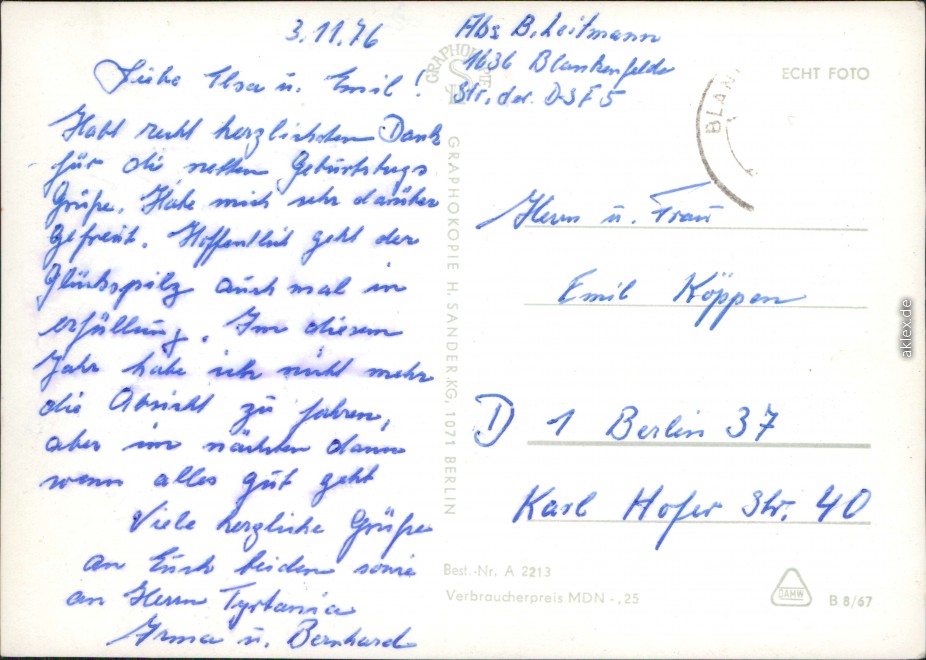 3.11.76
Liebe Elsa u. Emil!
Habt recht herzlichsten Dank
für die netten Geburtstags
Grüße. Habe mich sehr darüber
gefreut. Hoffentlich geht der
Glückspilz auch mal in
erfüllung. Im diesem
Jahr habe ich nicht mehr
die Absicht zu fahren,
aber im nächsten dann
wenn alles gut geht
Viele herzliche Grüße
an Euch beiden sowie
an Herrn Tyrtania
Irma u. Bernhard
Abs B. Leitmann
1636 Blankenfelde
Str. der DSF 5
GRAPHOKOPIE
GRAPHOKOPIE H. SANDER KG, 1071 BERLIN
ECHT FOTO
BLAN
Herrn u. Frau
Emil Köppen
D 1 Berlin 37
Karl Hofer Str. 40
Best.-Nr. A 2213
Verbraucherpreis MDN -,25
DAHW
B 8/67
aklex.de